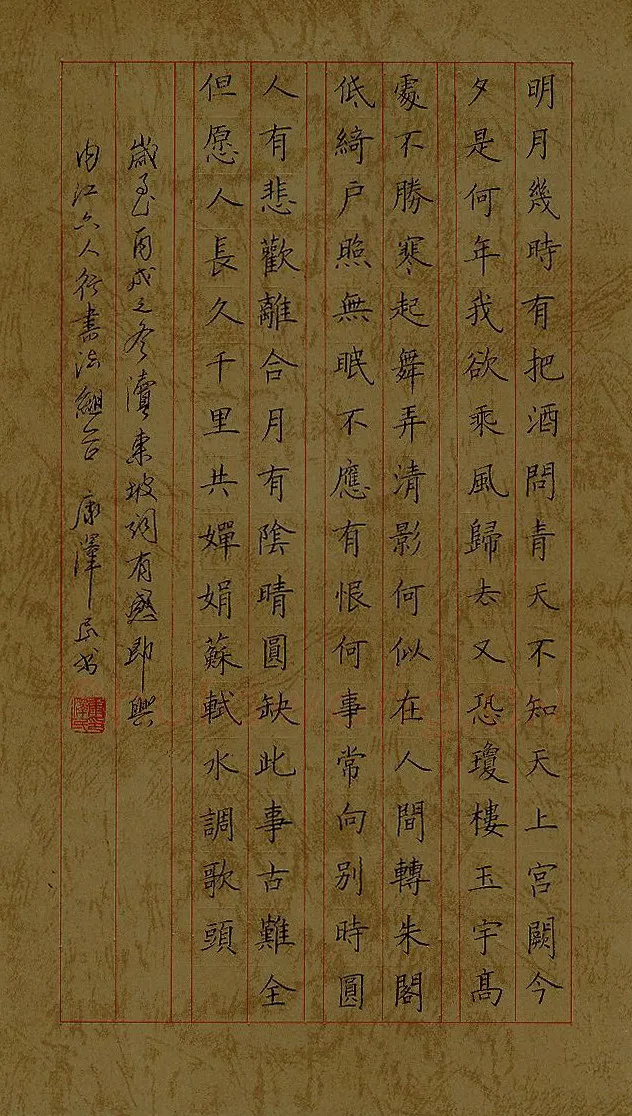 明月幾時有把酒問青天不知天上宮闕今
夕是何年我欲乘風歸去又恐瓊樓玉宇高
處不勝寒起舞弄清影何似在人間轉朱閣
低綺户照無眠不應有恨何事常向别時圓
人有悲歡離合月有陰晴圓缺此事古難全
但愿人長久千里共嬋娟蘇軾水調歌頭
歲在丙戌之冬瀆東坡詞有感即興
内江六人行書法組合 康澤民书